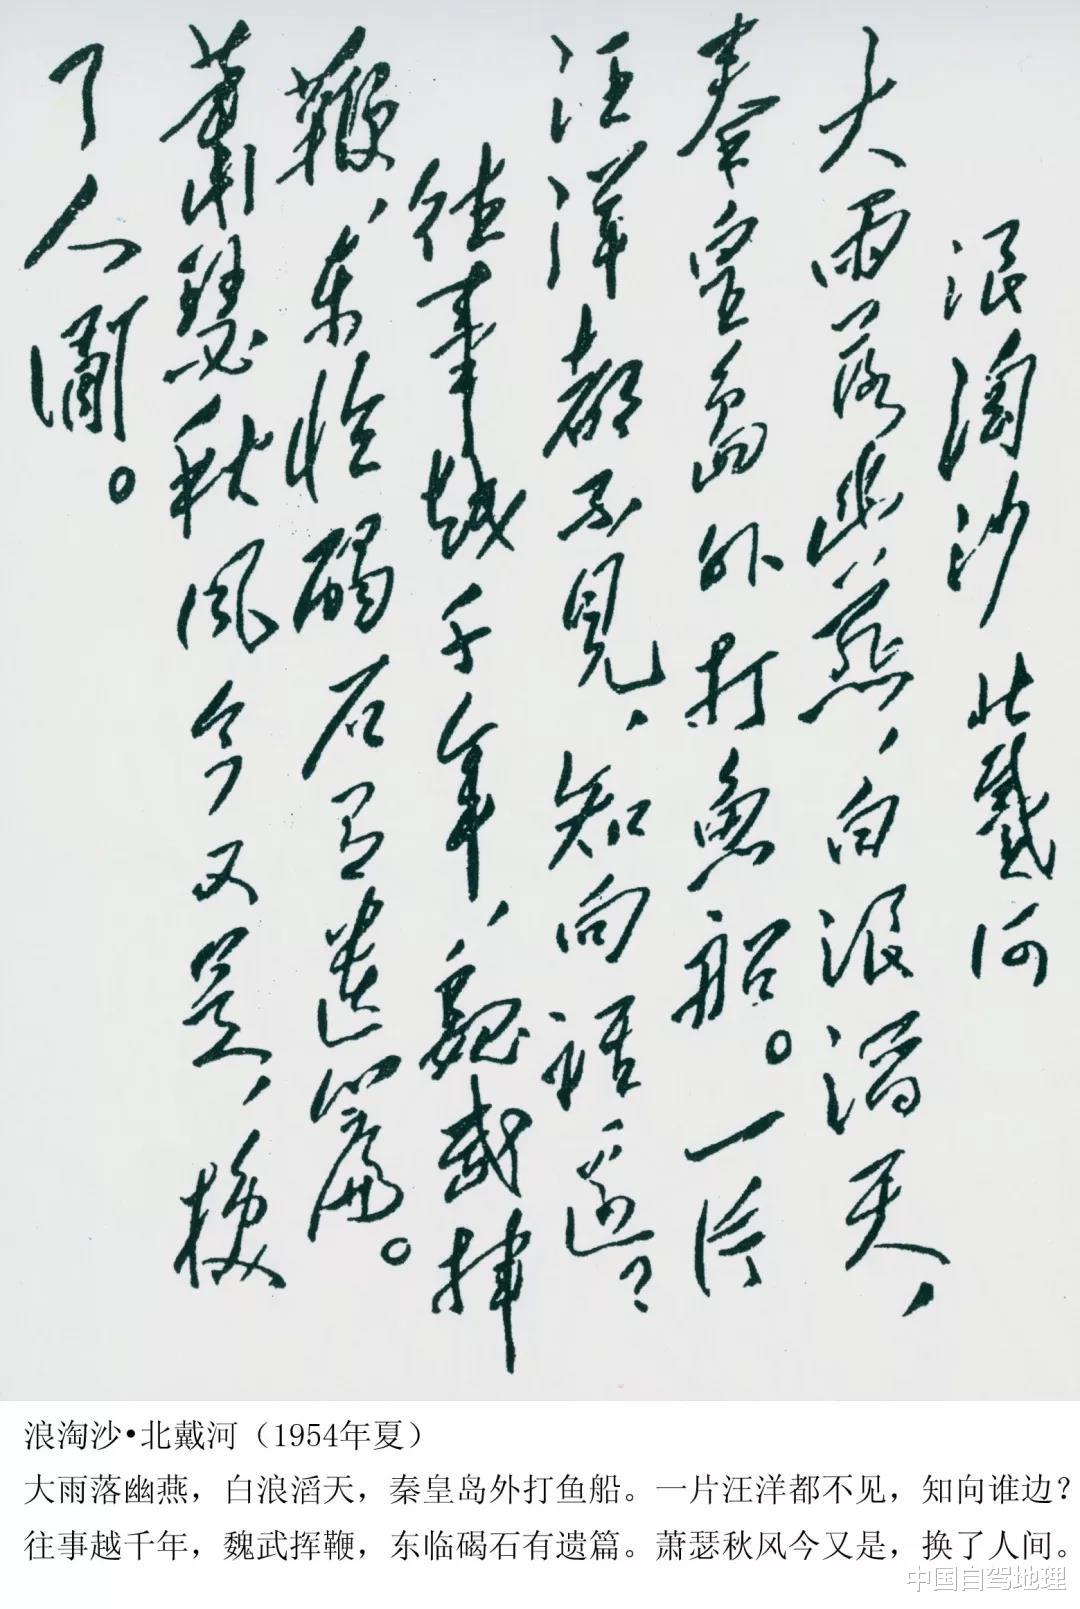 浪淘沙 北戴河
大雨落幽燕，白浪滔天，
秦皇岛外打鱼船。一片
汪洋都不见，知向谁边？
往事越千年，魏武挥
鞭，东临碣石有遗篇。
萧瑟秋风今又是，换
了人间。
浪淘沙•北戴河（1954年夏）
大雨落幽燕，白浪滔天，秦皇岛外打鱼船。一片汪洋都不见，知向谁边？
往事越千年，魏武挥鞭，东临碣石有遗篇。萧瑟秋风今又是，换了人间。
中国自驾地理